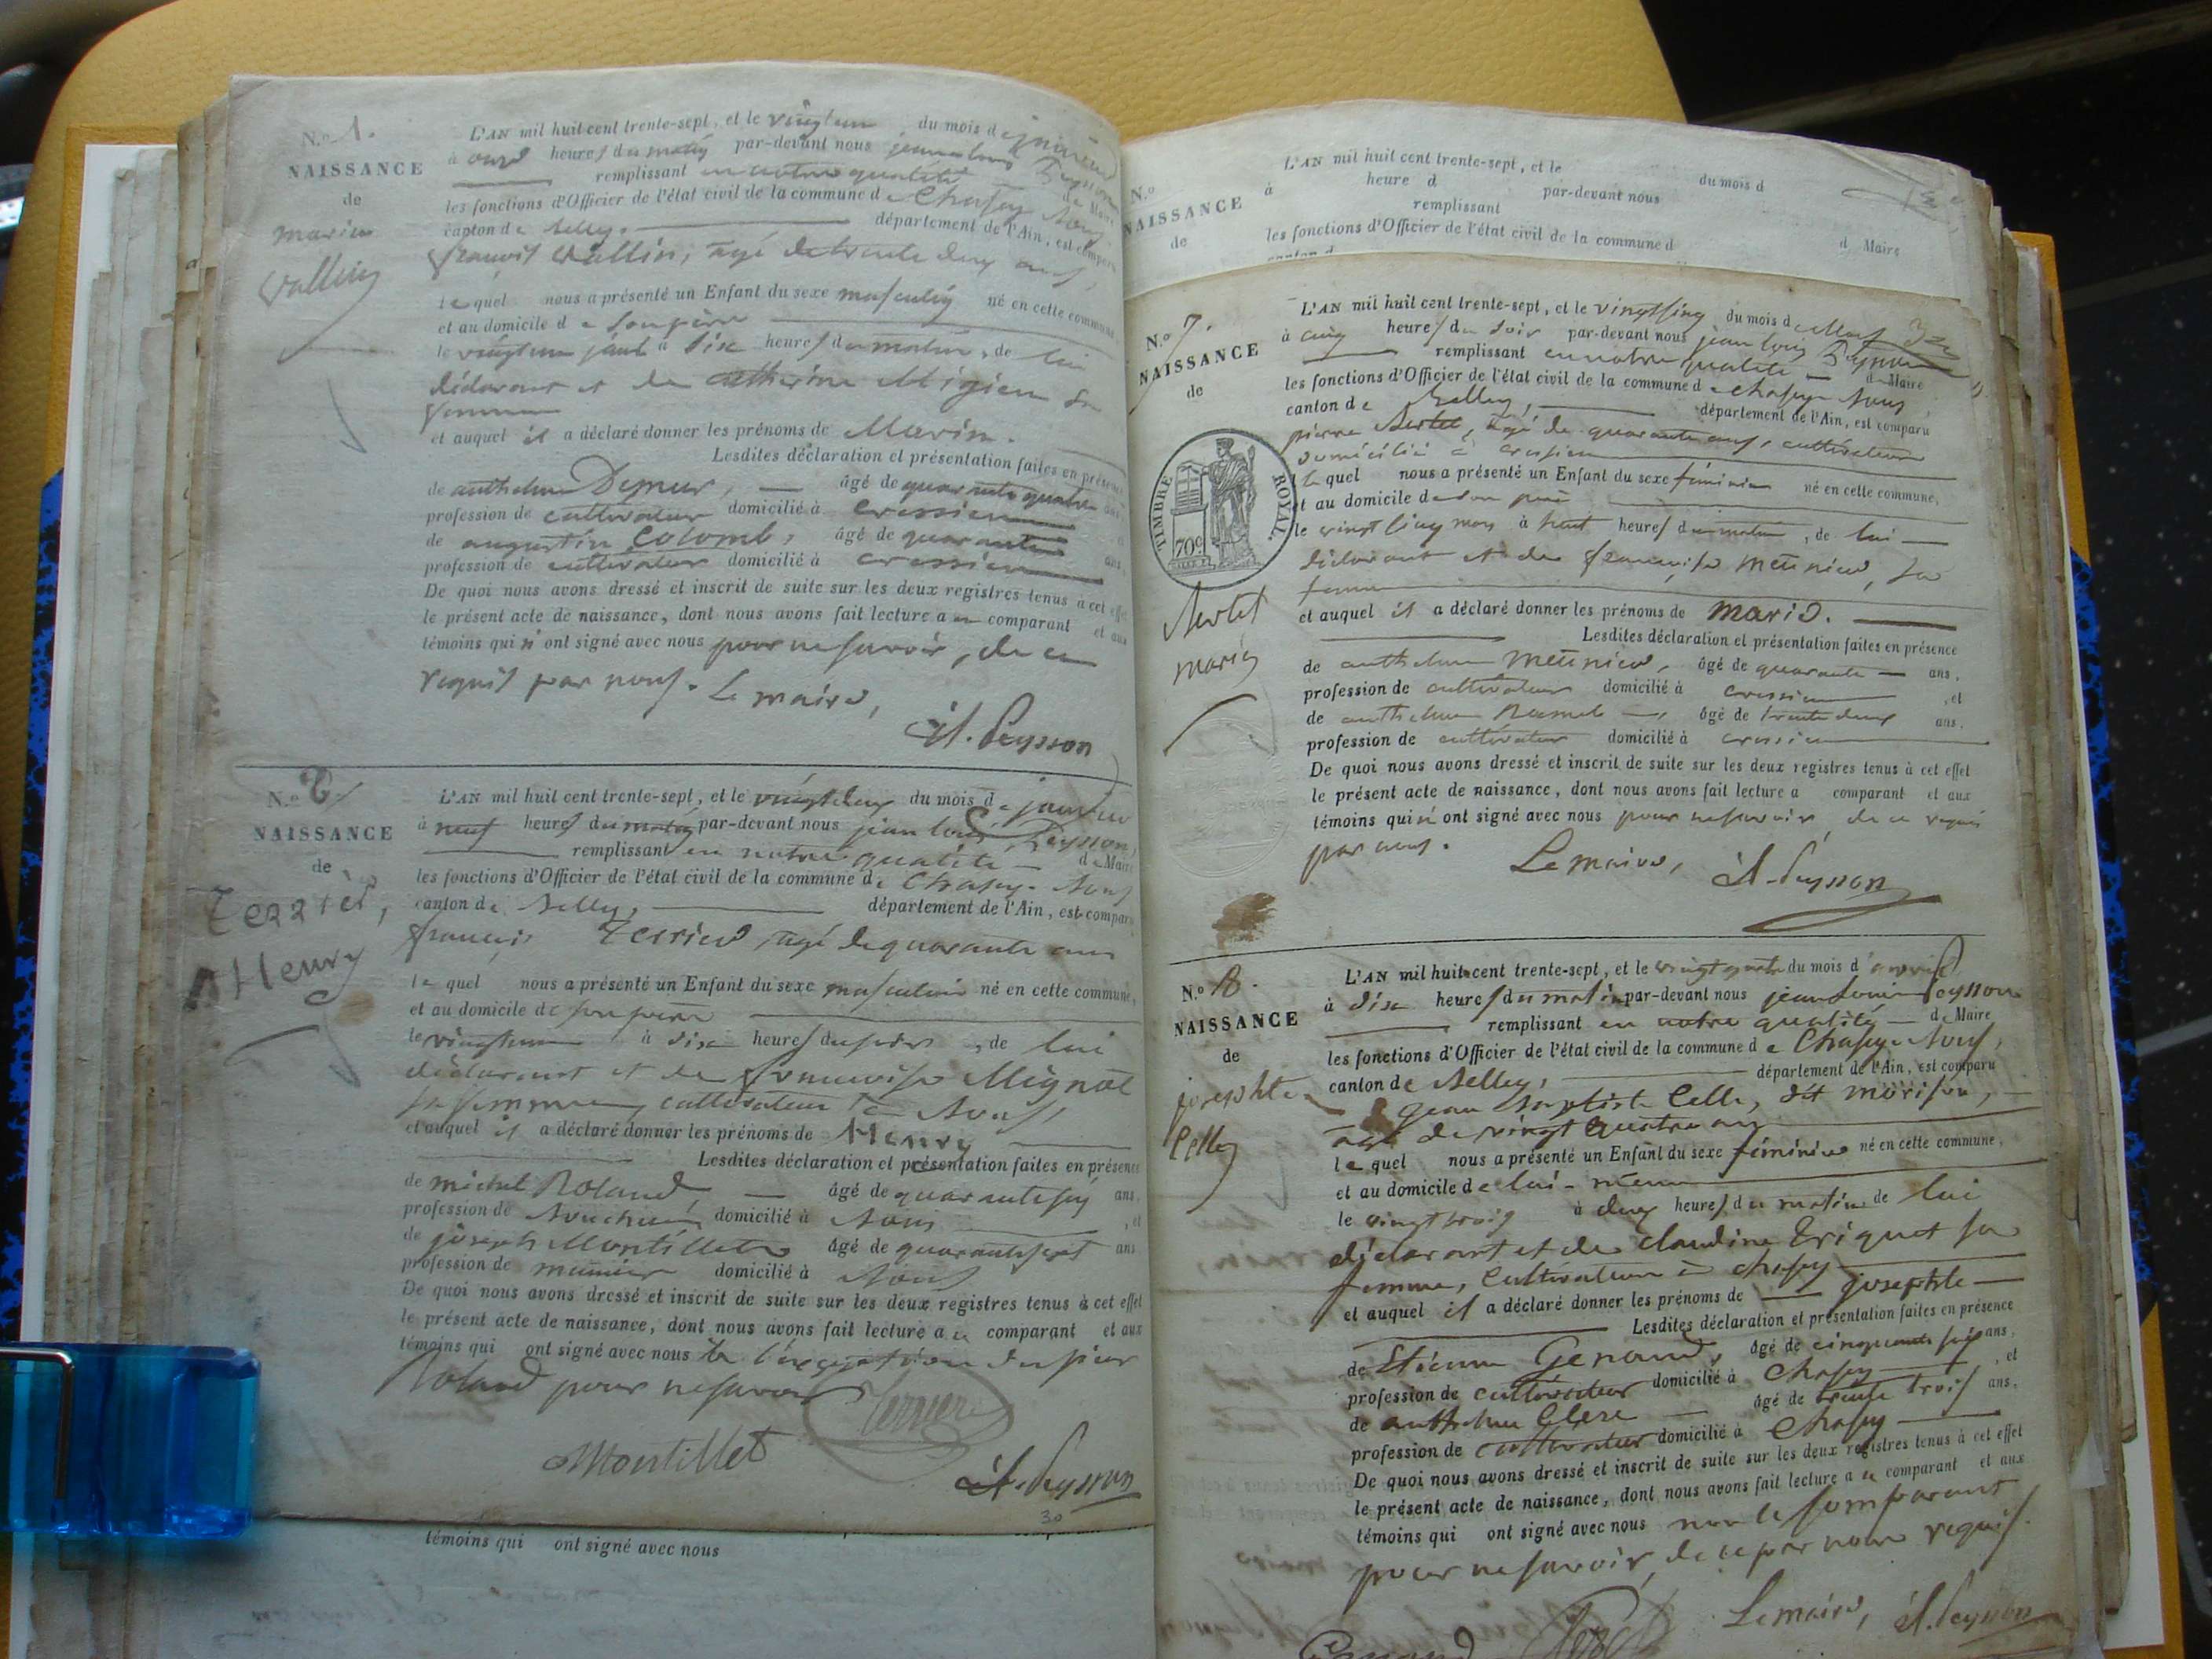 N.º 1.
NAISSANCE
de
marin
Vallin
L'AN mil huit cent trente-sept, et le vingt un du mois de janvier
à onze heures du matin par-devant nous jean louis Peysson
remplissant en notre qualité de Maire
les fonctions d'Officier de l'état civil de la commune de Chasey Nons
canton de Belley. département de l'Ain, est comparu
françois Vallin, agé de trente deux ans,
lequel nous a présenté un Enfant du sexe masculin né en cette commune
et au domicile de son père
le vingt un janv à dix heures du matin, de lui
déclarant et de catherine Migieu sa
femme
et auquel il a déclaré donner les prénoms de Marin.
Lesdites déclaration et présentation faites en présence
de anthelme Demeur, âgé de quarante quatre ans
profession de cultivateur domicilié à cressieu
de augustin Colomb, âgé de quarante
profession de cultivateur domicilié à cressieu ans,
De quoi nous avons dressé et inscrit de suite sur les deux registres tenus à cet effet
le présent acte de naissance, dont nous avons fait lecture au comparant et aux
témoins qui n'ont signé avec nous pour ne savoir, de ce
requis par nous. Le maire,
J.L. Peysson
N.º 2.
NAISSANCE
de
Terrier,
Henry
L'AN mil huit cent trente-sept, et le vingt deux du mois de janvier
à neuf heures du matin par-devant nous jean louis Peysson,
remplissant en notre qualité de Maire
les fonctions d'Officier de l'état civil de la commune de Chasey-Nons
canton de Belley, département de l'Ain, est comparu
françois Terrier, agé de quarante ans
lequel nous a présenté un Enfant du sexe masculin né en cette commune,
et au domicile de son père
le vingt un à dix heures du soir, de lui
déclarant et de françoise Mignot
sa femme, cultivateur à Nons,
et auquel il a déclaré donner les prénoms de Henry
Lesdites déclaration et présentation faites en présence
de michel Roland, âgé de quarante six ans,
profession de domicilié à Nons, et
de joseph Montillet âgé de quarante sept ans
profession de meunier domicilié à Nons
De quoi nous avons dressé et inscrit de suite sur les deux registres tenus à cet effet
le présent acte de naissance, dont nous avons fait lecture au comparant et aux
témoins qui ont signé avec nous à l'exception du sieur
Roland pour ne savoir
Terrier
Montillet
J.L. Peysson
30
témoins qui ont signé avec nous
N.º
NAISSANCE
de
L'AN mil huit cent trente-sept, et le du mois d
à heure d par-devant nous
remplissant d Maire
les fonctions d'Officier de l'état civil de la commune d
canton d
N.º 7.
NAISSANCE
de
TIMBRE ROYAL.
70c
Bertet
marie
L'AN mil huit cent trente-sept, et le vingt cinq du mois de Mars
à cinq heures du soir par-devant nous jean louis Peysson
remplissant en notre qualité de Maire
les fonctions d'Officier de l'état civil de la commune de chasey-Nons
canton de Belley, département de l'Ain, est comparu
pierre Bertet, agé de quarante ans, cultivateur
domicilié à cressieu
lequel nous a présenté un Enfant du sexe féminin né en cette commune,
et au domicile de son père
le vingt cinq mars à huit heures du matin, de lui
déclarant et de françoise meunier, sa
femme
et auquel il a déclaré donner les prénoms de marie.
Lesdites déclaration et présentation faites en présence
de anthelme meunier, âgé de quarante ans,
profession de cultivateur domicilié à cressieu, et
de anthelme Ramel, âgé de trente deux ans,
profession de cultivateur domicilié à cressieu
De quoi nous avons dressé et inscrit de suite sur les deux registres tenus à cet effet
le présent acte de naissance, dont nous avons fait lecture a comparant et aux
témoins qui n'ont signé avec nous pour ne savoir, de ce requis
par nous.
Le maire, J.L. Peysson
N.º 8.
NAISSANCE
de
josephte
Celle
L'AN mil huit cent trente-sept, et le vingt quatre du mois d'avril
à dix heures du matin par-devant nous jean louis Peysson
remplissant en notre qualité de Maire
les fonctions d'Officier de l'état civil de la commune de Chasey-Nons,
canton de Belley, département de l'Ain, est comparu
jean baptiste Celle, dit morison,
agé de vingt quatre ans
lequel nous a présenté un Enfant du sexe féminin né en cette commune,
et au domicile de lui-même
le vingt trois à deux heures du matin de lui
déclarant et de claudine Triquet sa
femme, cultivateur à chasey
et auquel il a déclaré donner les prénoms de josephte
Lesdites déclaration et présentation faites en présence
de Etienne Genand, âgé de cinquante six ans,
profession de cultivateur domicilié à Chasey, et
de anthelme Clerc âgé de trente trois ans,
profession de cultivateur domicilié à Chasey
De quoi nous avons dressé et inscrit de suite sur les deux registres tenus à cet effet
le présent acte de naissance, dont nous avons fait lecture au comparant et aux
témoins qui ont signé avec nous non le comparant
pour ne savoir, de ce par nous requis.
Le maire, J.L. Peysson
Genand